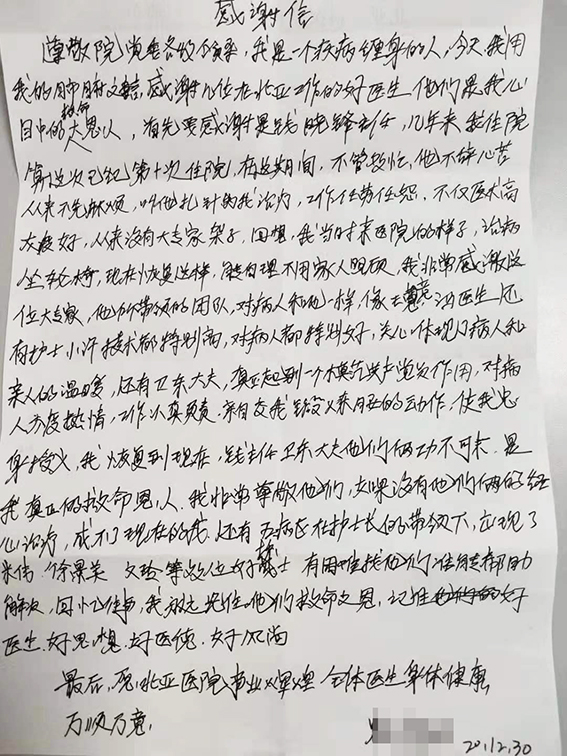 感谢信
尊敬院党委各级领导，我是一个疾病缠身的人，今天我用
我的 感谢几位在北亚工作的好医生他们是我心
目中的救命大恩人，首先要感谢是钱晓锋主任，几年来我住院
算这次已纪第十次住院，在这期间，不管多忙，他不辞心苦
从来不怕麻烦，叫他扎针的我治疗，工作任劳任怨，不仅医术高
太度好，从来没有大专家架子，回想，我当时来医院的样子，治病
坐轮椅，现在恢复这样，能自理不用家人照顾，我非常感激这
位大专家，他所带领的团队，对病人和他一样，像王 医生还
有护士小许技术都特别高，对病人都特别好，关心体现了病人和
亲人的温暖，还有卫东大夫，真正起到一个模范共产党员作用，对病
人太度热情，工作认真负责 亲自交我 动作，使我忠
身 ，我恢复到现在，钱主任卫东大夫他们俩功不可末 是
我真正的救命恩人，我非常尊敬他们，如果没有他们俩的经
心治疗，成不了现在的我 还有五病区在护士长的带领下，出现了
米伟 徐景美 文玲等数位好护士 有困难找他们准能帮助
解决，回忆往事，我永远记住他们救命之恩，记准 好
医生 好思想 好医德 好风尚
最后，愿北亚医院事业辉煌 全体医生身体健康
万顺万意，
20.12.30